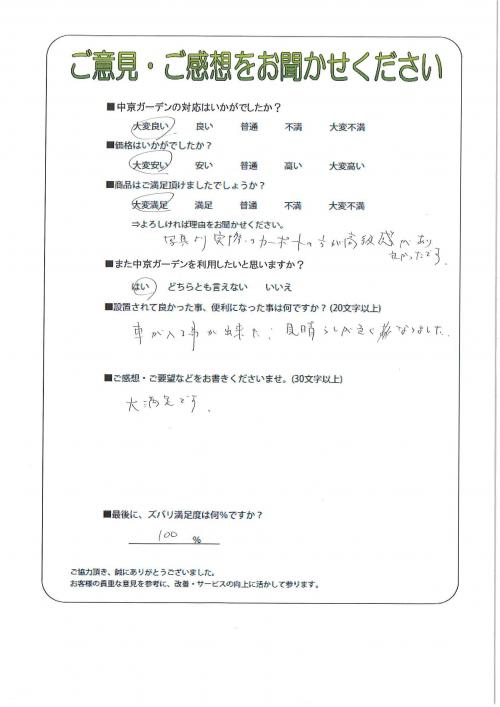 ご意見・ご感想をお聞かせください
■中京ガーデンの対応はいかがでしたか？
大変良い 良い 普通 不満 大変不満
■価格はいかがでしたか？
大変安い 安い 普通 高い 大変高い
■商品はご満足頂けましたでしょうか？
大変満足 満足 普通 不満 大変不満
⇒よろしければ理由をお聞かせください。
写真より実際のカーポートの方が高級感があり
よかったです。
■また中京ガーデンを利用したいと思いますか？
はい どちらとも言えない いいえ
■設置されて良かった事、便利になった事は何ですか？(20文字以上)
車が入る事が出来た。見晴らしが良くなりました。
■ご感想・ご要望などをお書きくださいませ。(30文字以上)
大満足です。
■最後に、ズバリ満足度は何％ですか？
100 ％
ご協力頂き、誠にありがとうございました。
お客様の貴重な意見を参考に、改善・サービスの向上に活かして参ります。